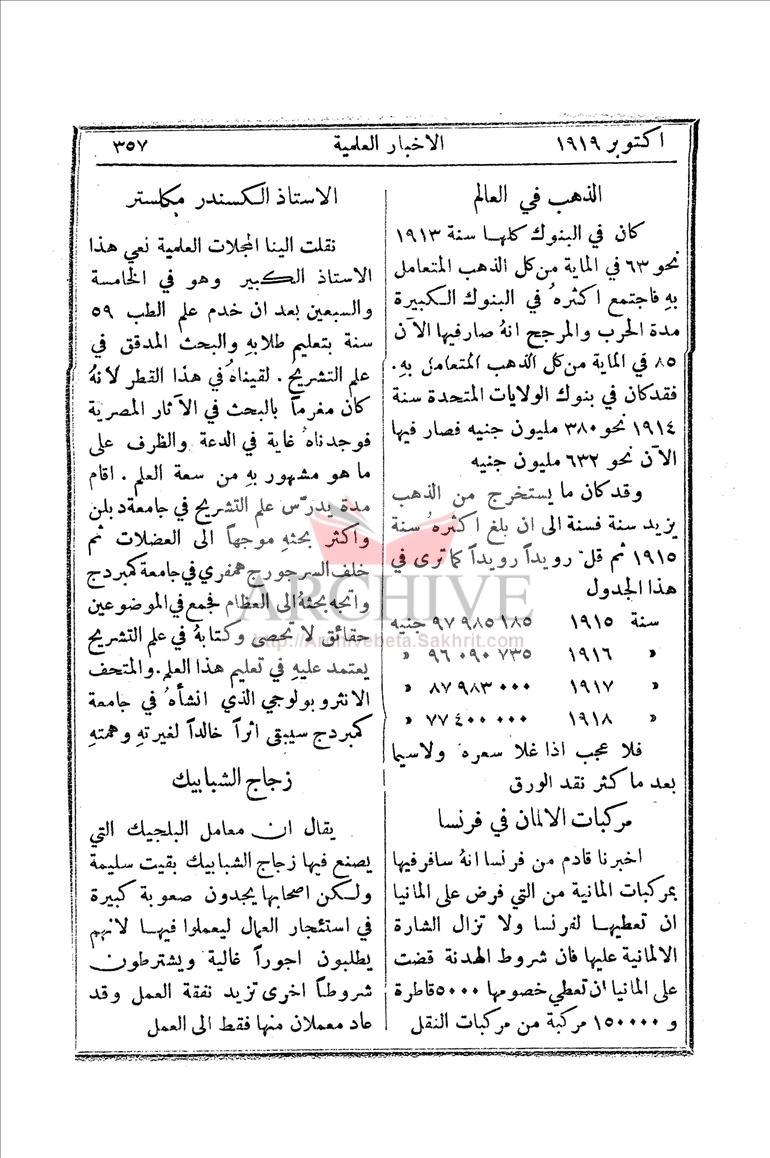 اكتوبر ١٩١٩
الاخبار العلمية
٣٥٧
الذهب في العالم
كان في البنوك كلها سنة ١٩١٣
نحو ٦٣ في الماية من كل الذهب المتعامل
بهِ فاجتمع اكثرهُ في البنوك الكبيرة
مدة الحرب والمرجح انهُ صار فيها الآن
٨٥ في الماية من كل الذهب المتعامل بهِ.
فقد كان في بنوك الولايات المتحدة سنة
١٩١٤ نحو ٣٨٠ مليون جنيه فصار فيها
الآن نحو ٦٣٢ مليون جنيه
وقد كان ما يستخرج من الذهب
يزيد سنة فسنة الى ان بلغ اكثرهُ سنة
١٩١٥ ثم قلَّ رويداً رويداً كما ترى في
هذا الجدول
سنة ١٩١٥ ٩٧ ٩٨٥ ١٨٥ جنيه
» ١٩١٦ ٩٦ ٠٩٠ ٧٣٥ »
» ١٩١٧ ٨٧ ٩٨٣ ٠٠٠ »
» ١٩١٨ ٧٧ ٤٠٠ ٠٠٠ »
فلا عجب اذا غلا سعره ولاسيما
بعد ما كثر نقد الورق
مركبات الالمان في فرنسا
اخبرنا قادم من فرنسا انهُ سافر فيها
بمركبات المانية من التي فرض على المانيا
ان تعطيها لفرنسا ولا تزال الشارة
الالمانية عليها فان شروط الهدنة قضت
على المانيا ان تعطي خصومها ٥٠٠٠ قاطرة
و ١٥٠٠٠٠ مركبة من مركبات النقل
الاستاذ الكسندر مكلستر
نقلت الينا المجلات العلمية نعي هذا
الاستاذ الكبير وهو في الخامسة
والسبعين بعد ان خدم علم الطب ٥٩
سنة بتعليم طلابهِ والبحث المدقق في
علم التشريح . لقيناهُ في هذا القطر لانهُ
كان مغرماً بالبحث في الآثار المصرية
فوجدناهُ غاية في الدعة والظرف على
ما هو مشهور بهِ من سعة العلم . اقام
مدة يدرّس علم التشريح في جامعة دبلن
واكثر بحثهِ موجهاً الى العضلات ثم
خلف السر جورج همفري في جامعة كمبردج
واتجه بحثهُ الى العظام فجمع في الموضوعين
حقائق لا تحصى وكتابهُ في علم التشريح
يعتمد عليهِ في تعليم هذا العلم . والمتحف
الانثروبولوجي الذي انشأهُ في جامعة
كمبردج سيبقى اثراً خالداً لغيرتهِ وهمتهِ
زجاج الشبابيك
يقال ان معامل البلجيك التي
يصنع فيها زجاج الشبابيك بقيت سليمة
ولكن اصحابها يجدون صعوبة كبيرة
في استئجار العمال ليعملوا فيها لانهم
يطلبون اجوراً غالية ويشترطون
شروطاً اخرى تزيد نفقة العمل وقد
عاد معملان منها فقط الى العمل
ARCHIVE
http://Archivebeta.Sakhrit.com